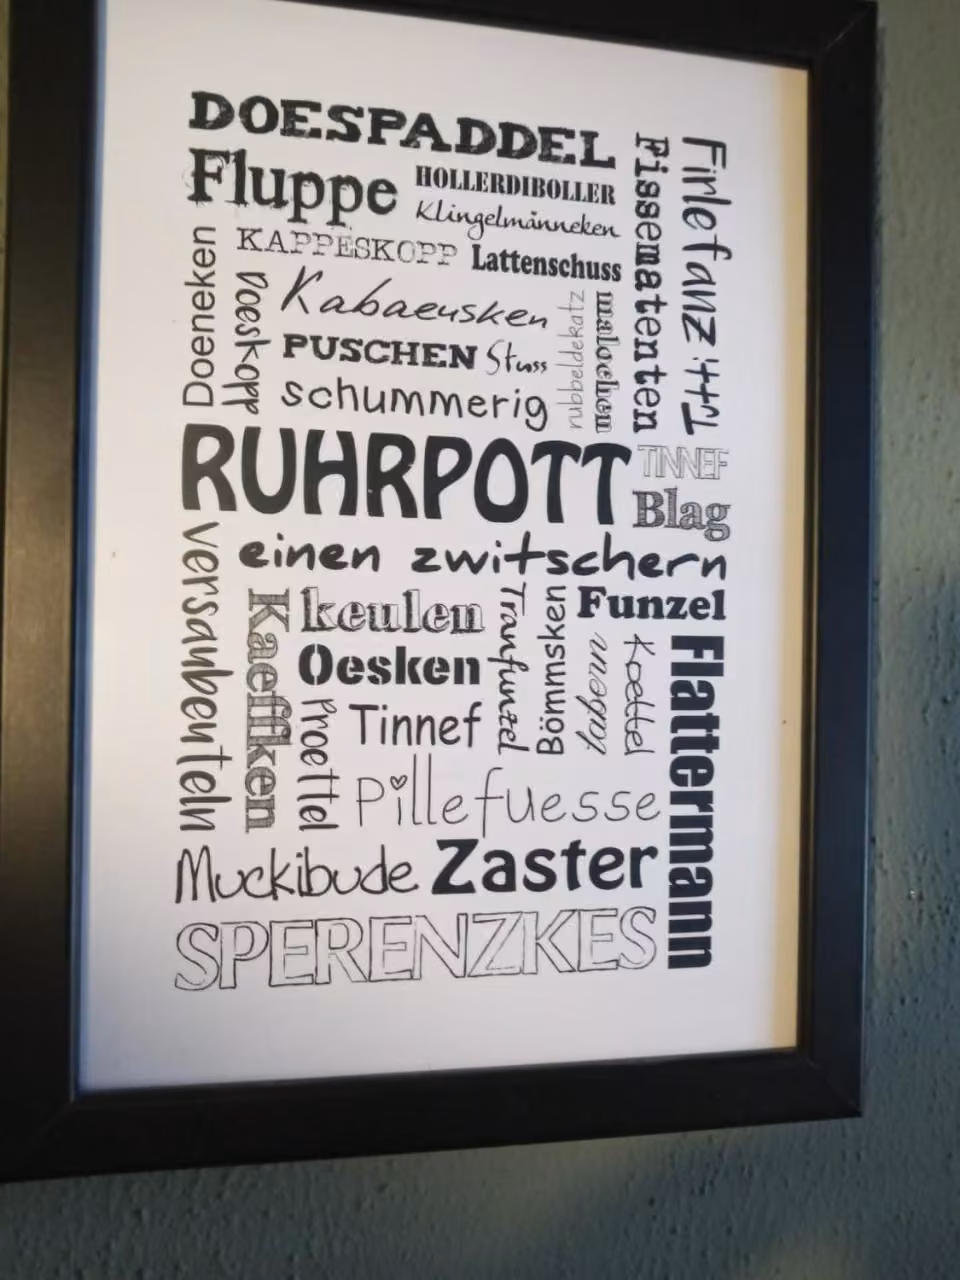 DOESPADDEL
Fluppe
HOLLERDIBOLLER
Klingelmänneken
KAPPESKOPP
Lattenschuss
Fissematenten
Firlefanz
Doeneken
Doeskopp
Kabaeusken
PUSCHEN
Stuss
schummerig
rubbeldekatz
malochen
RUHRPOTT
TINNEF
Blag
einen zwitschern
versaubeuteln
Kaeffken
keulen
Oesken
Proettel
Tinnef
Tranfunzel
Bömmsken
Funzel
usselig
Koettel
Flattermann
Pillefuesse
Muckibude
Zaster
SPERENZKES